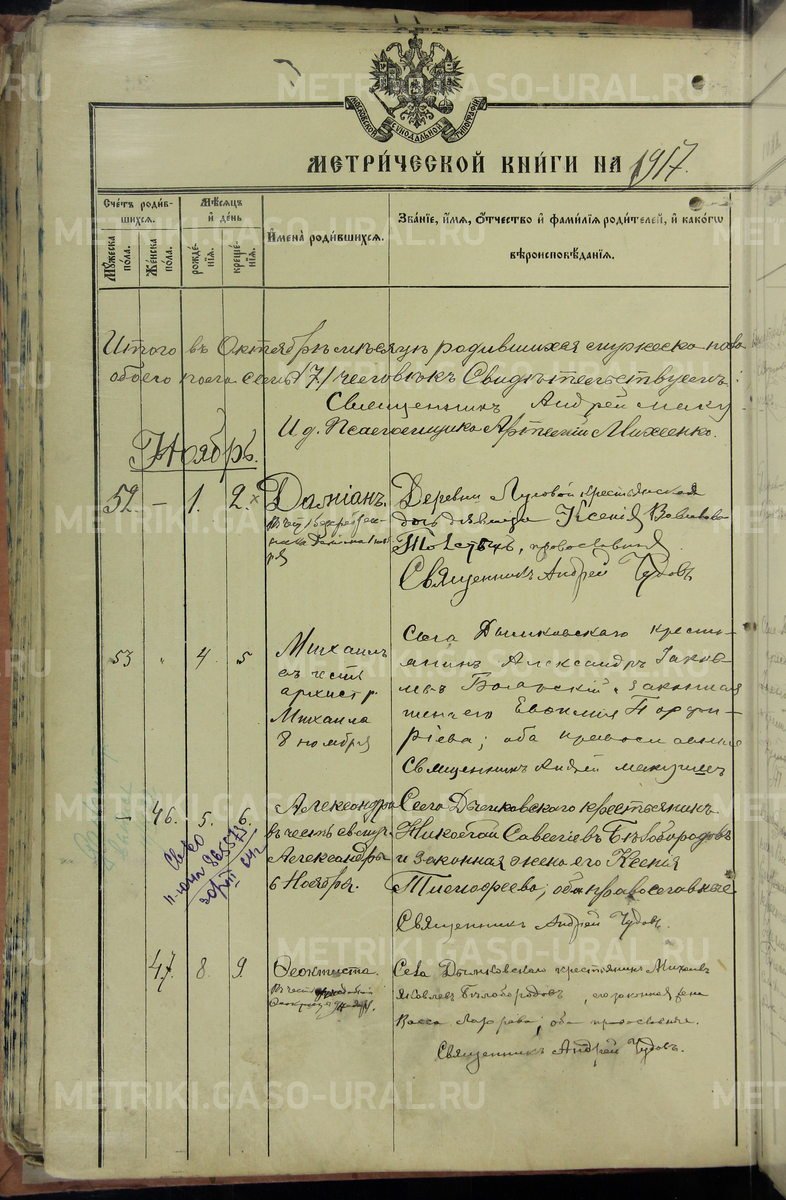 МОСКОВСКОЙ СѴНОДАЛЬНОЙ ТИПОГРАФІИ
МЕТРИ́ЧЕСКОЙ КНИ́ГИ НА 1917.
Сче́тъ роди́в-
шихся.
Мꙋ́жеска
по́ла.
Же́нска
по́ла.
Мѣ́сяцъ
и҆ де́нь
рожде́-
нїя.
креще́-
нїя.
И҆мена̀ роди́вшихся.
Зва́нїе, и҆́мя, ѻ҆́тчество и҆ фами́лїя роди́телей, и҆ како́гѡ
вѣроисповѣ́данїя.
Итого въ Октябрѣ мѣсяцѣ родившихся мужеска пола
обоего пола семь /7/ человѣкъ Свидѣтельствуемъ:
Священникъ Андрей
И. д. Псаломщика Артемій Михеенко.
Ноябрь.
52. — 1. 2. ×
Даміанъ.
Деревни Луговой крестьянская
дочь дѣвица Ксенія
Толстыхъ, православная
Священникъ Андрей Чудовъ
53 " 4 5
Михаилъ
въ честь
архистр.
Михаила
8 ноября
Села Дымковскаго кресть-
янинъ Александръ Іаков-
левъ Боярскій и законная
жена его Евфимія Порфи-
ріева; оба православные
Священникъ Андрей
— 46. 5. 6.
Александра
въ честь св. муч.
Александры
6 Ноября.
Села Дымковскаго крестьянинъ
Николай Савельевъ Бѣлобородовъ
и законная жена его Ксенія
Тимофеева; оба православные
Священникъ Андрей Чудовъ.
Св-во
47. 8. 9.
Феоктиста.
Села Дымковскаго крестьянинъ Михаилъ
Яковлевъ Бѣлобородовъ, его законная жена
Васса; оба православные.
Священникъ Андрей Чудовъ.
METRIKI.GASO-URAL.RU